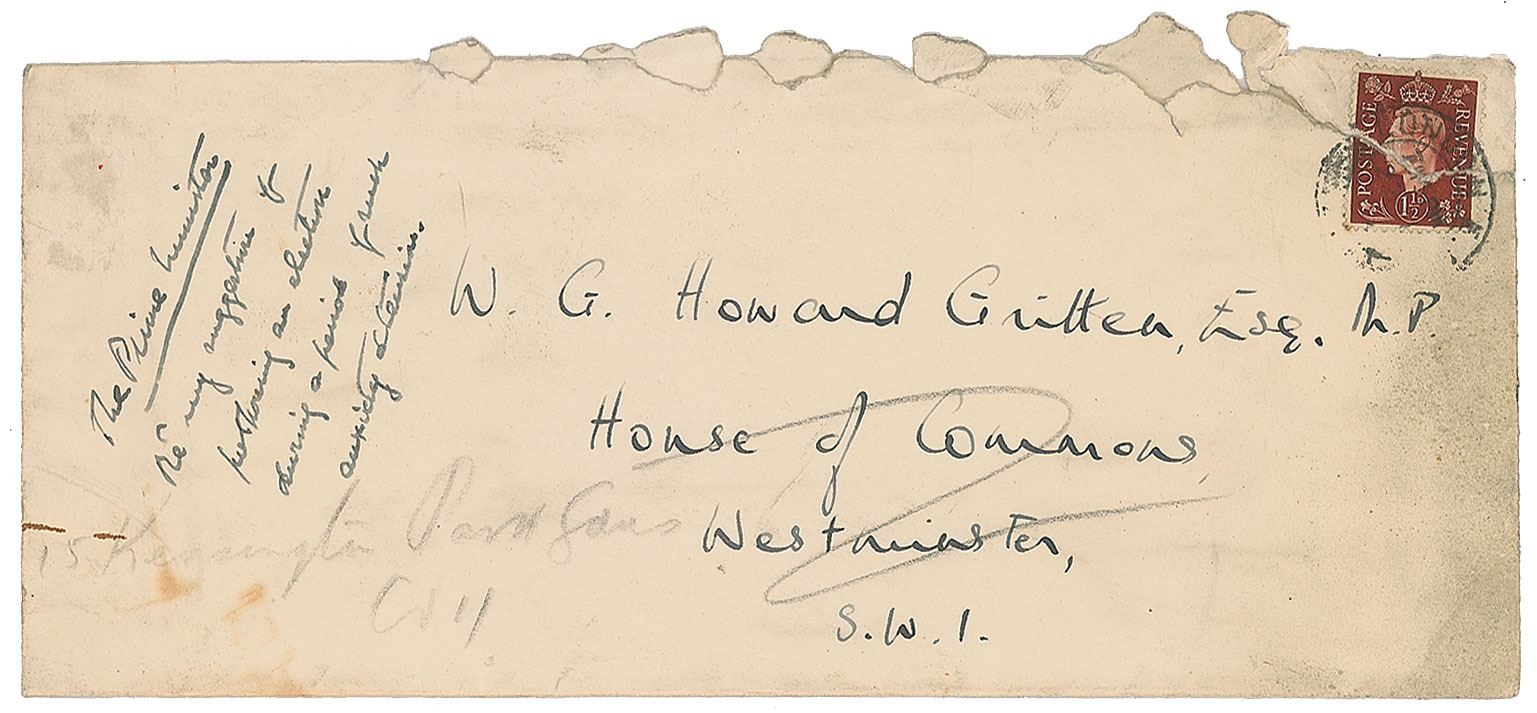 The Prime Minister
Re my suggestion of
postponing an election
during a period of such
anxiety & tension.
POSTAGE
REVENUE
1½
W. G. Howard Gritten, Esq. M.P.
House of Commons,
Westminster,
S.W.1.
15 Kensington Park Gdns
W 11